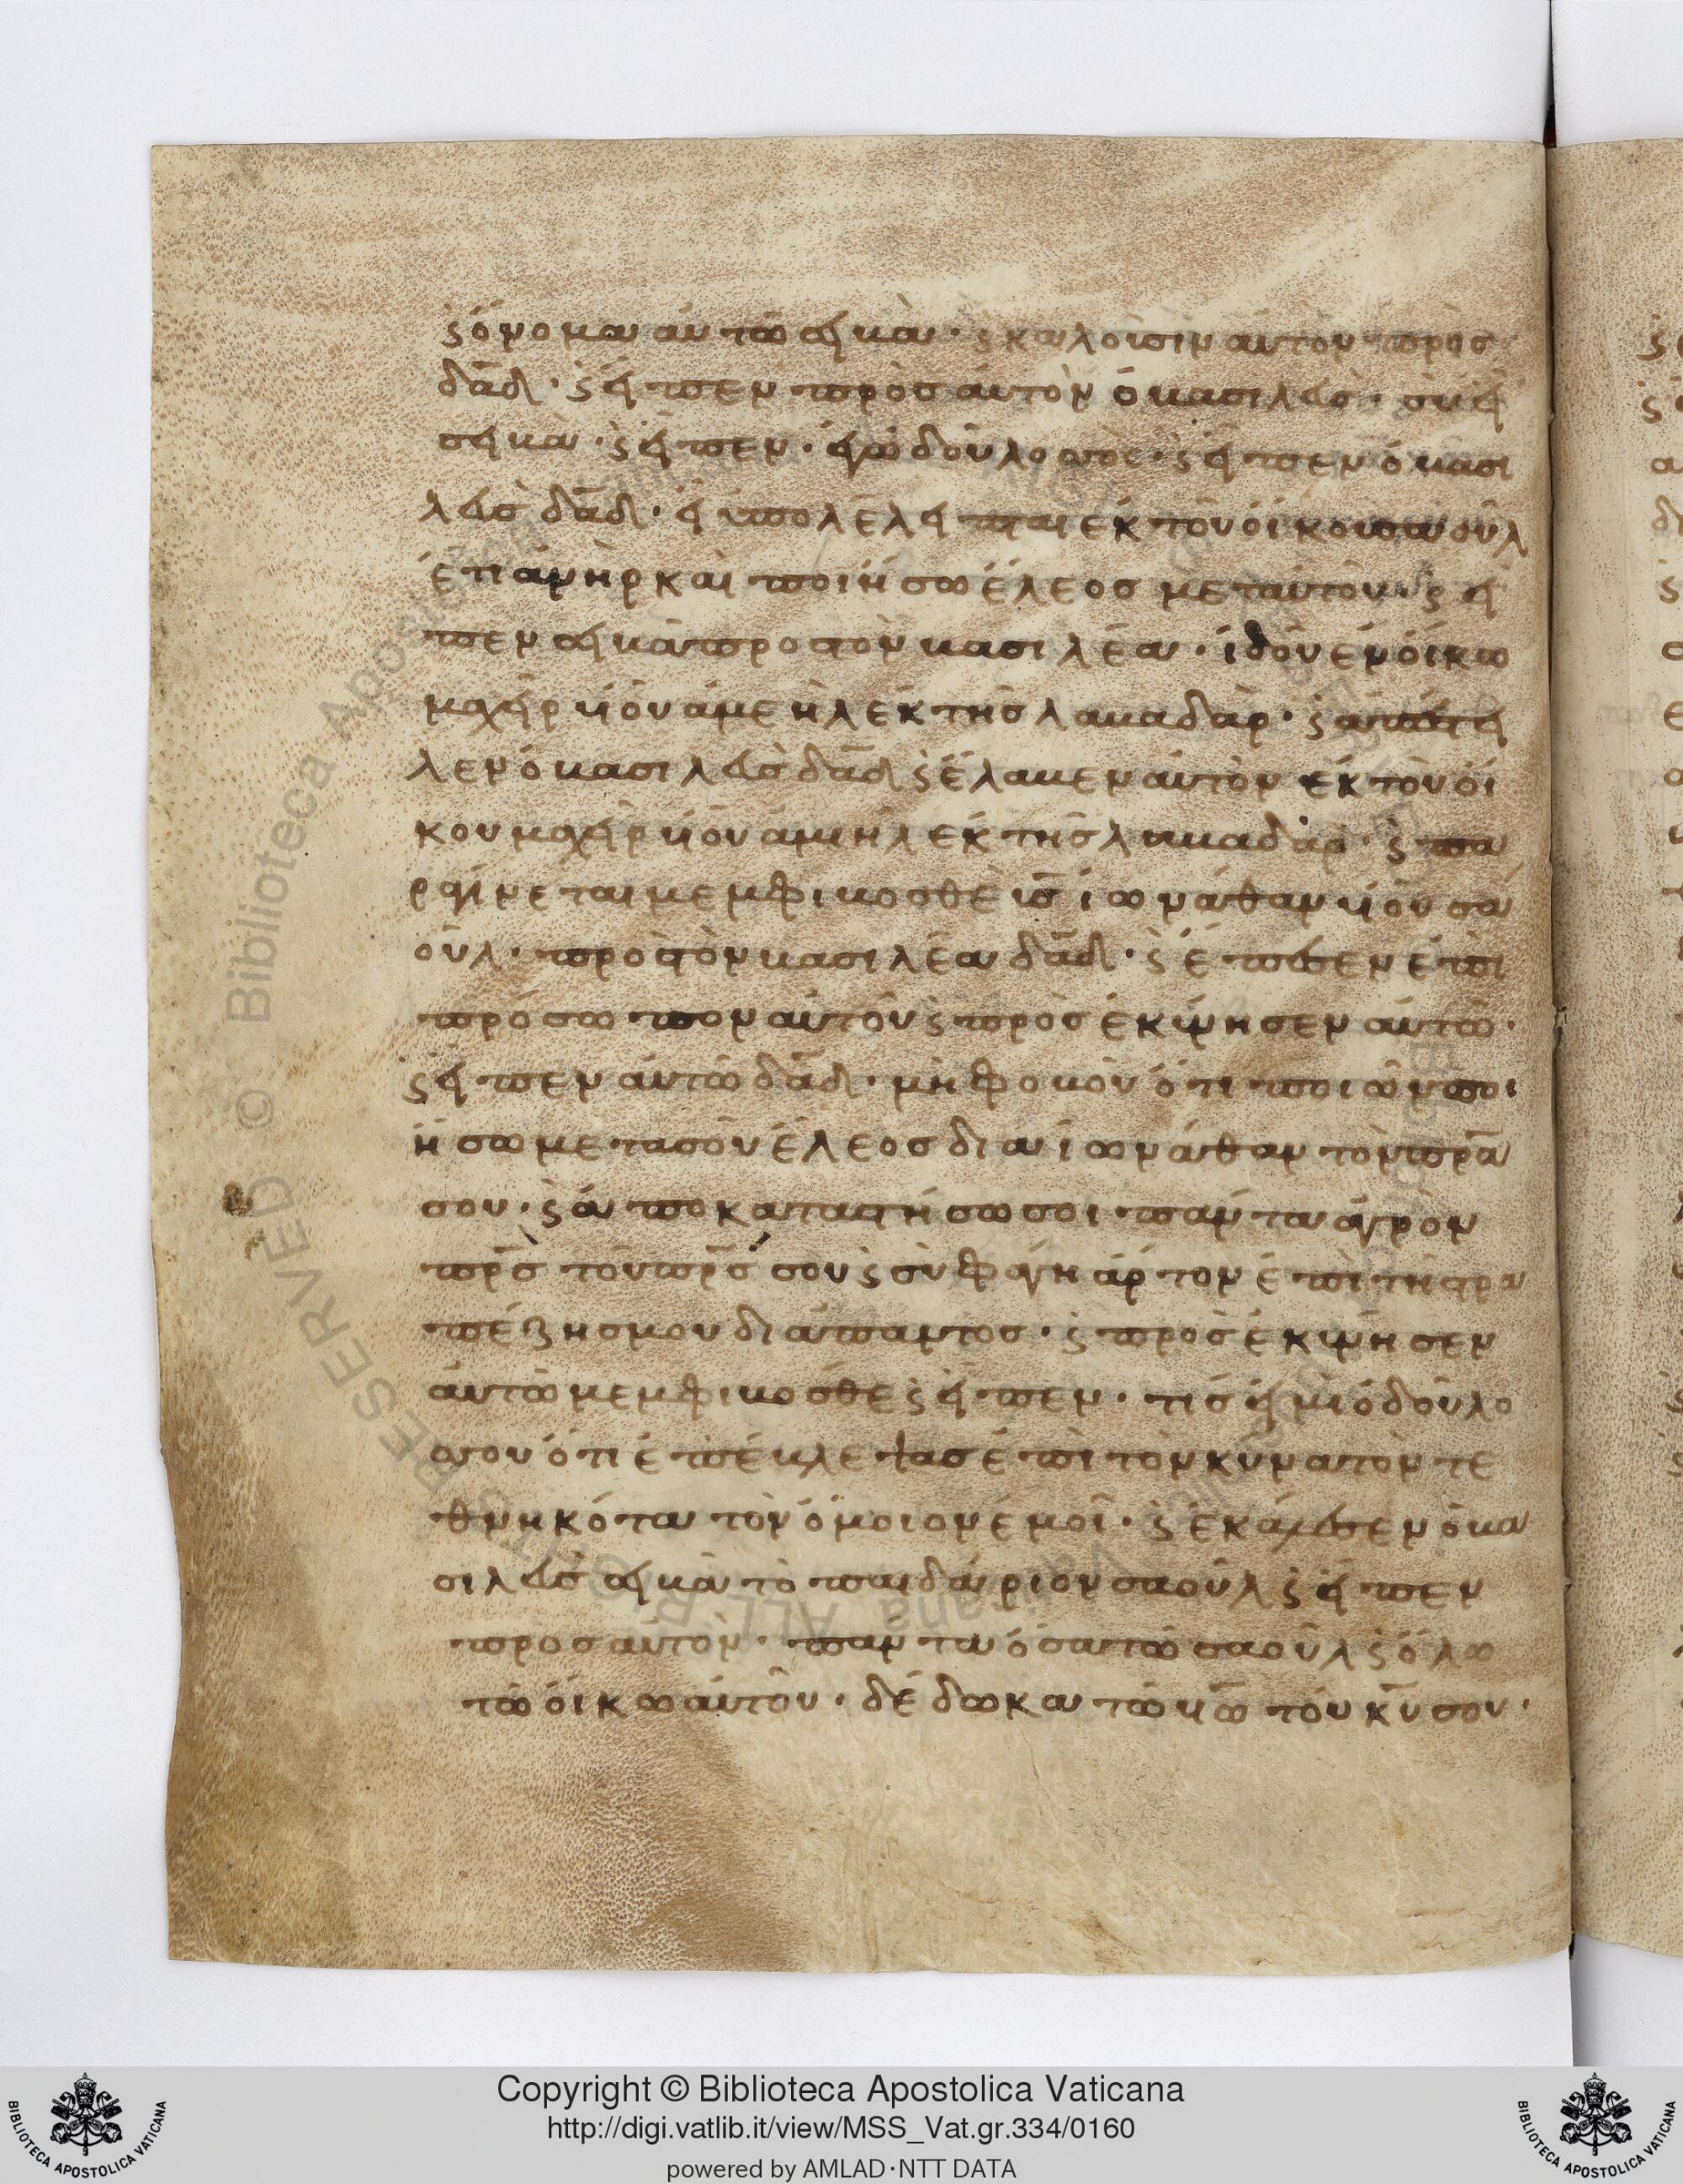 ϛ ὄνομα αὐτῶ σηβά· ϛ καλοῦσιν αὐτὸν πρὸς
δᾱδ· ϛ εἶπεν πρὸς αὐτὸν ὁ βασιλεύς· σὺ εἶ
σηβά· ϛ εἶπεν· ἐγὼ δοῦλος σός· ϛ εἶπεν ὁ βασι
λεὺς δᾱδ· εἰ ὑπολέλειπται ἐκ τοῦ οἴκου σαοὺλ
ἔτι ἀνὴρ καὶ ποιήσω ἔλεος μετ αὐτοῦ· ϛ εἶ
πεν σηβὰ προς τὸν βασιλέα· ἰδοὺ ἐν οἴκω
μαχεὶρ υἱοῦ ἀμεὴλ ἐκ τῆς λαβαδάρ· ϛ ἀπέστει
λεν ὁ βασιλεὺς δᾱδ ϛ ἔλαβεν αὐτὸν ἐκ τοῦ οἴ
κου μαχεὶρ υἱοῦ ἀμιὴλ ἐκ τῆς λαβαδάρ· ϛ πα
ραγίνεται μεμφιβοσθὲ ῡς ἰωνάθαν υἱοῦ σα
οὺλ· προς τὸν βασιλέα δᾱδ· ϛ ἔπεσεν ἐπὶ
πρόσωπον αὐτοῦ ϛ προσεκύνησεν αὐτῶ·
ϛ εἶπεν αὐτῶ δᾱδ· μὴ φοβοῦ ὅτι ποιῶν ποι
ήσω μετα σοῦ ἔλεος δια ἰωνάθαν τὸν πρ̄α
σου· ϛ ἀποκαταστήσω σοι πάντα ἀγρὸν
πρ̄ς τοῦ πρ̄ς σου ϛ σὺ φάγη ἄρτον ἐπὶ τῆς τρα
πέζης μου διαπαντος· ϛ προσεκύνησεν
αὐτῶ μεμφιβοσθὲ ϛ εἶπεν· τίς εἰμι ὁ δοῦλο
ς σου ὅτι ἐπέβλεψας ἐπὶ τὸν κύνα τὸν τε
θνηκότα τὸν ὅμοιον ἐμοί· ϛ ἐκάλεσεν ὁ βα
σιλεὺς σηβὰ τὸ παιδάριον σαοὺλ ϛ εἶπεν
προς αὐτὸν· πάντα ὅσα τῶ σαοὺλ ϛ ὅλω
τῶ οἴκω αὐτοῦ· δέδωκα τῶ ῡω τοῦ κ̄υ σου·
Copyright © Biblioteca Apostolica Vaticana
http://digi.vatlib.it/view/MSS_Vat.gr.334/0160
powered by AMLAD·NTT DATA
BIBLIOTECA APOSTOLICA VATICANA
BIBLIOTECA APOSTOLICA VATICANA